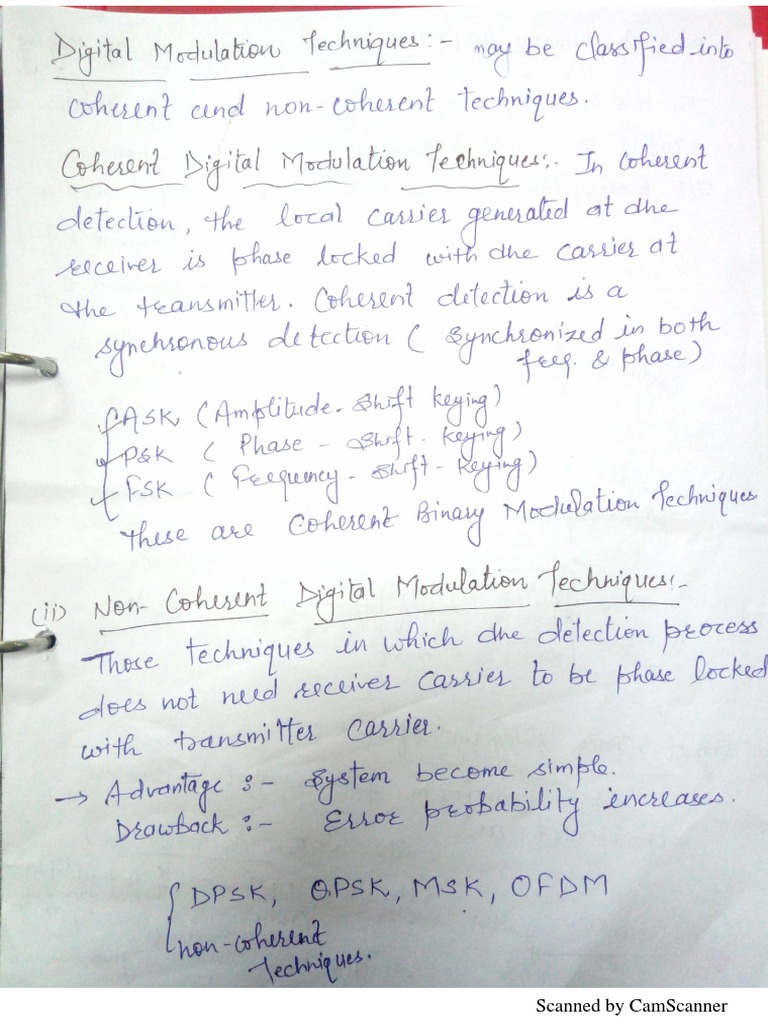 Digital Modulation Techniques:- may be classified into
coherent and non-coherent techniques.
Coherent Digital Modulation Techniques:. In coherent
detection, the local carrier generated at the
receiver is phase locked with the carrier at
the transmitter. Coherent detection is a
synchronous detection ( synchronized in both
freq. & phase)
ASK (Amplitude-Shift keying)
PSK ( Phase - Shift- keying)
FSK ( Frequency- Shift- keying)
These are Coherent Binary Modulation Techniques
(ii) Non-Coherent Digital Modulation Techniques:-
Those techniques in which the detection process
does not need receiver carrier to be phase locked
with transmitter carrier.
→ Advantage :- System become simple.
Drawback :- Error probability increases.
DPSK, QPSK, MSK, OFDM
non-coherent
Techniques.
Scanned by CamScanner